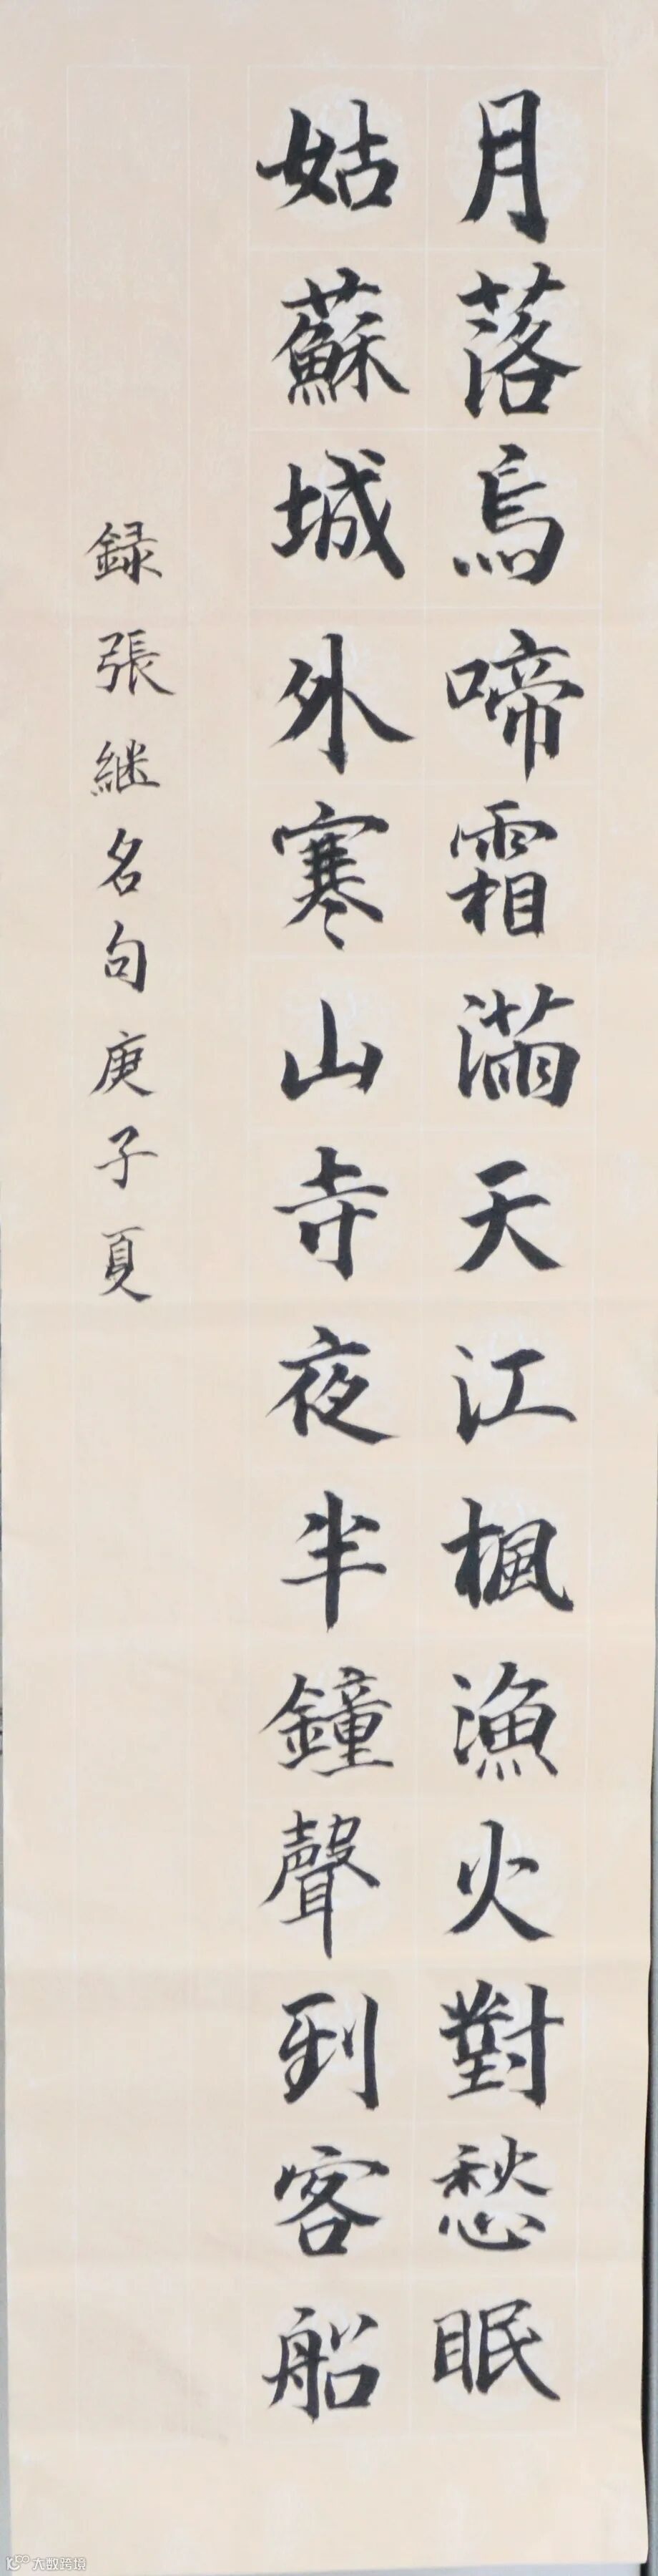 月落烏啼霜滿天江楓漁火對愁眠
姑蘇城外寒山寺夜半鐘聲到客船
録張継名句庚子夏
大数跨境